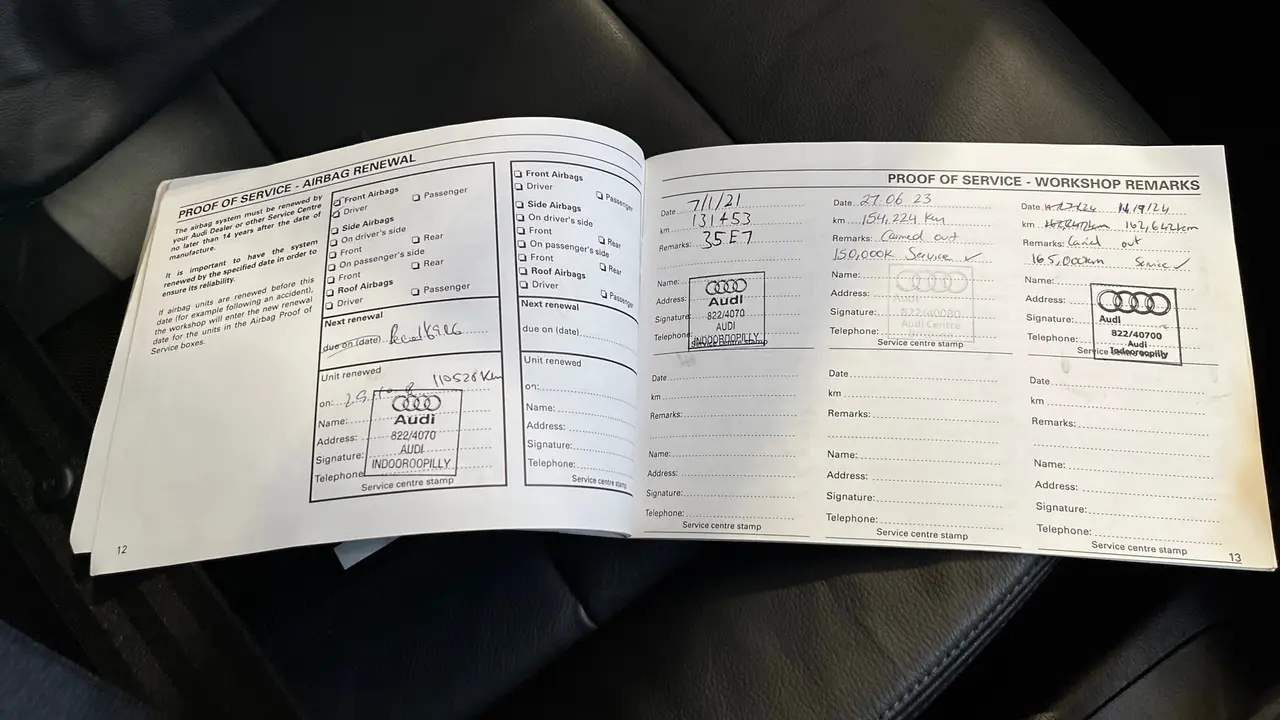 PROOF OF SERVICE - AIRBAG RENEWAL
The airbag system must be renewed by
your Audi Dealer or other Service Centre
no later than 14 years after the date of
manufacture.
It is important to have the system
renewed by the specified date in order to
ensure its reliability.
If airbag units are renewed before this
date (for example following an accident),
the workshop will enter the new renewal
date for the units in the Airbag Proof of
Service boxes.
Front Airbags
Driver
Passenger
Side Airbags
On driver's side
Front
Rear
On passenger's side
Front
Rear
Roof Airbags
Driver
Passenger
Next renewal
due on (date)
Unit renewed
on:
110528 Km
Name:
Address:
Signature:
Telephone
Audi
822/4070
AUDI
INDOOROOPILLY
Service centre stamp
12
Front Airbags
Driver
Passenger
Side Airbags
On driver's side
Front
Rear
On passenger's side
Front
Rear
Roof Airbags
Driver
Passenger
Next renewal
due on (date)
Unit renewed
on:
Name:
Address:
Signature:
Telephone:
Service centre stamp
PROOF OF SERVICE - WORKSHOP REMARKS
Date 7/1/21
km 131453
Remarks: 35E7
Name:
Address:
Signature
Telephone
Audi
822/4070
AUDI
INDOOROOPILLY
Date
km
Remarks:
Name:
Address:
Signature:
Telephone:
Service centre stamp
Date 27.06 23
km 154,224 Km
Remarks: Carried out
150,000K Service ✓
Name:
Address:
Signature:
Telephone:
Audi
822/40080
Audi Centre
Service centre stamp
Date
km
Remarks:
Name:
Address:
Signature:
Telephone:
Service centre stamp
Date 14/9/24
km 162,642km
Remarks: Carried out
165,000km Service ✓
Name:
Address:
Signature:
Telephone:
Audi
822/40700
Audi
Indooroopilly
Date
km
Remarks:
Name:
Address:
Signature:
Telephone:
Service centre stamp
13